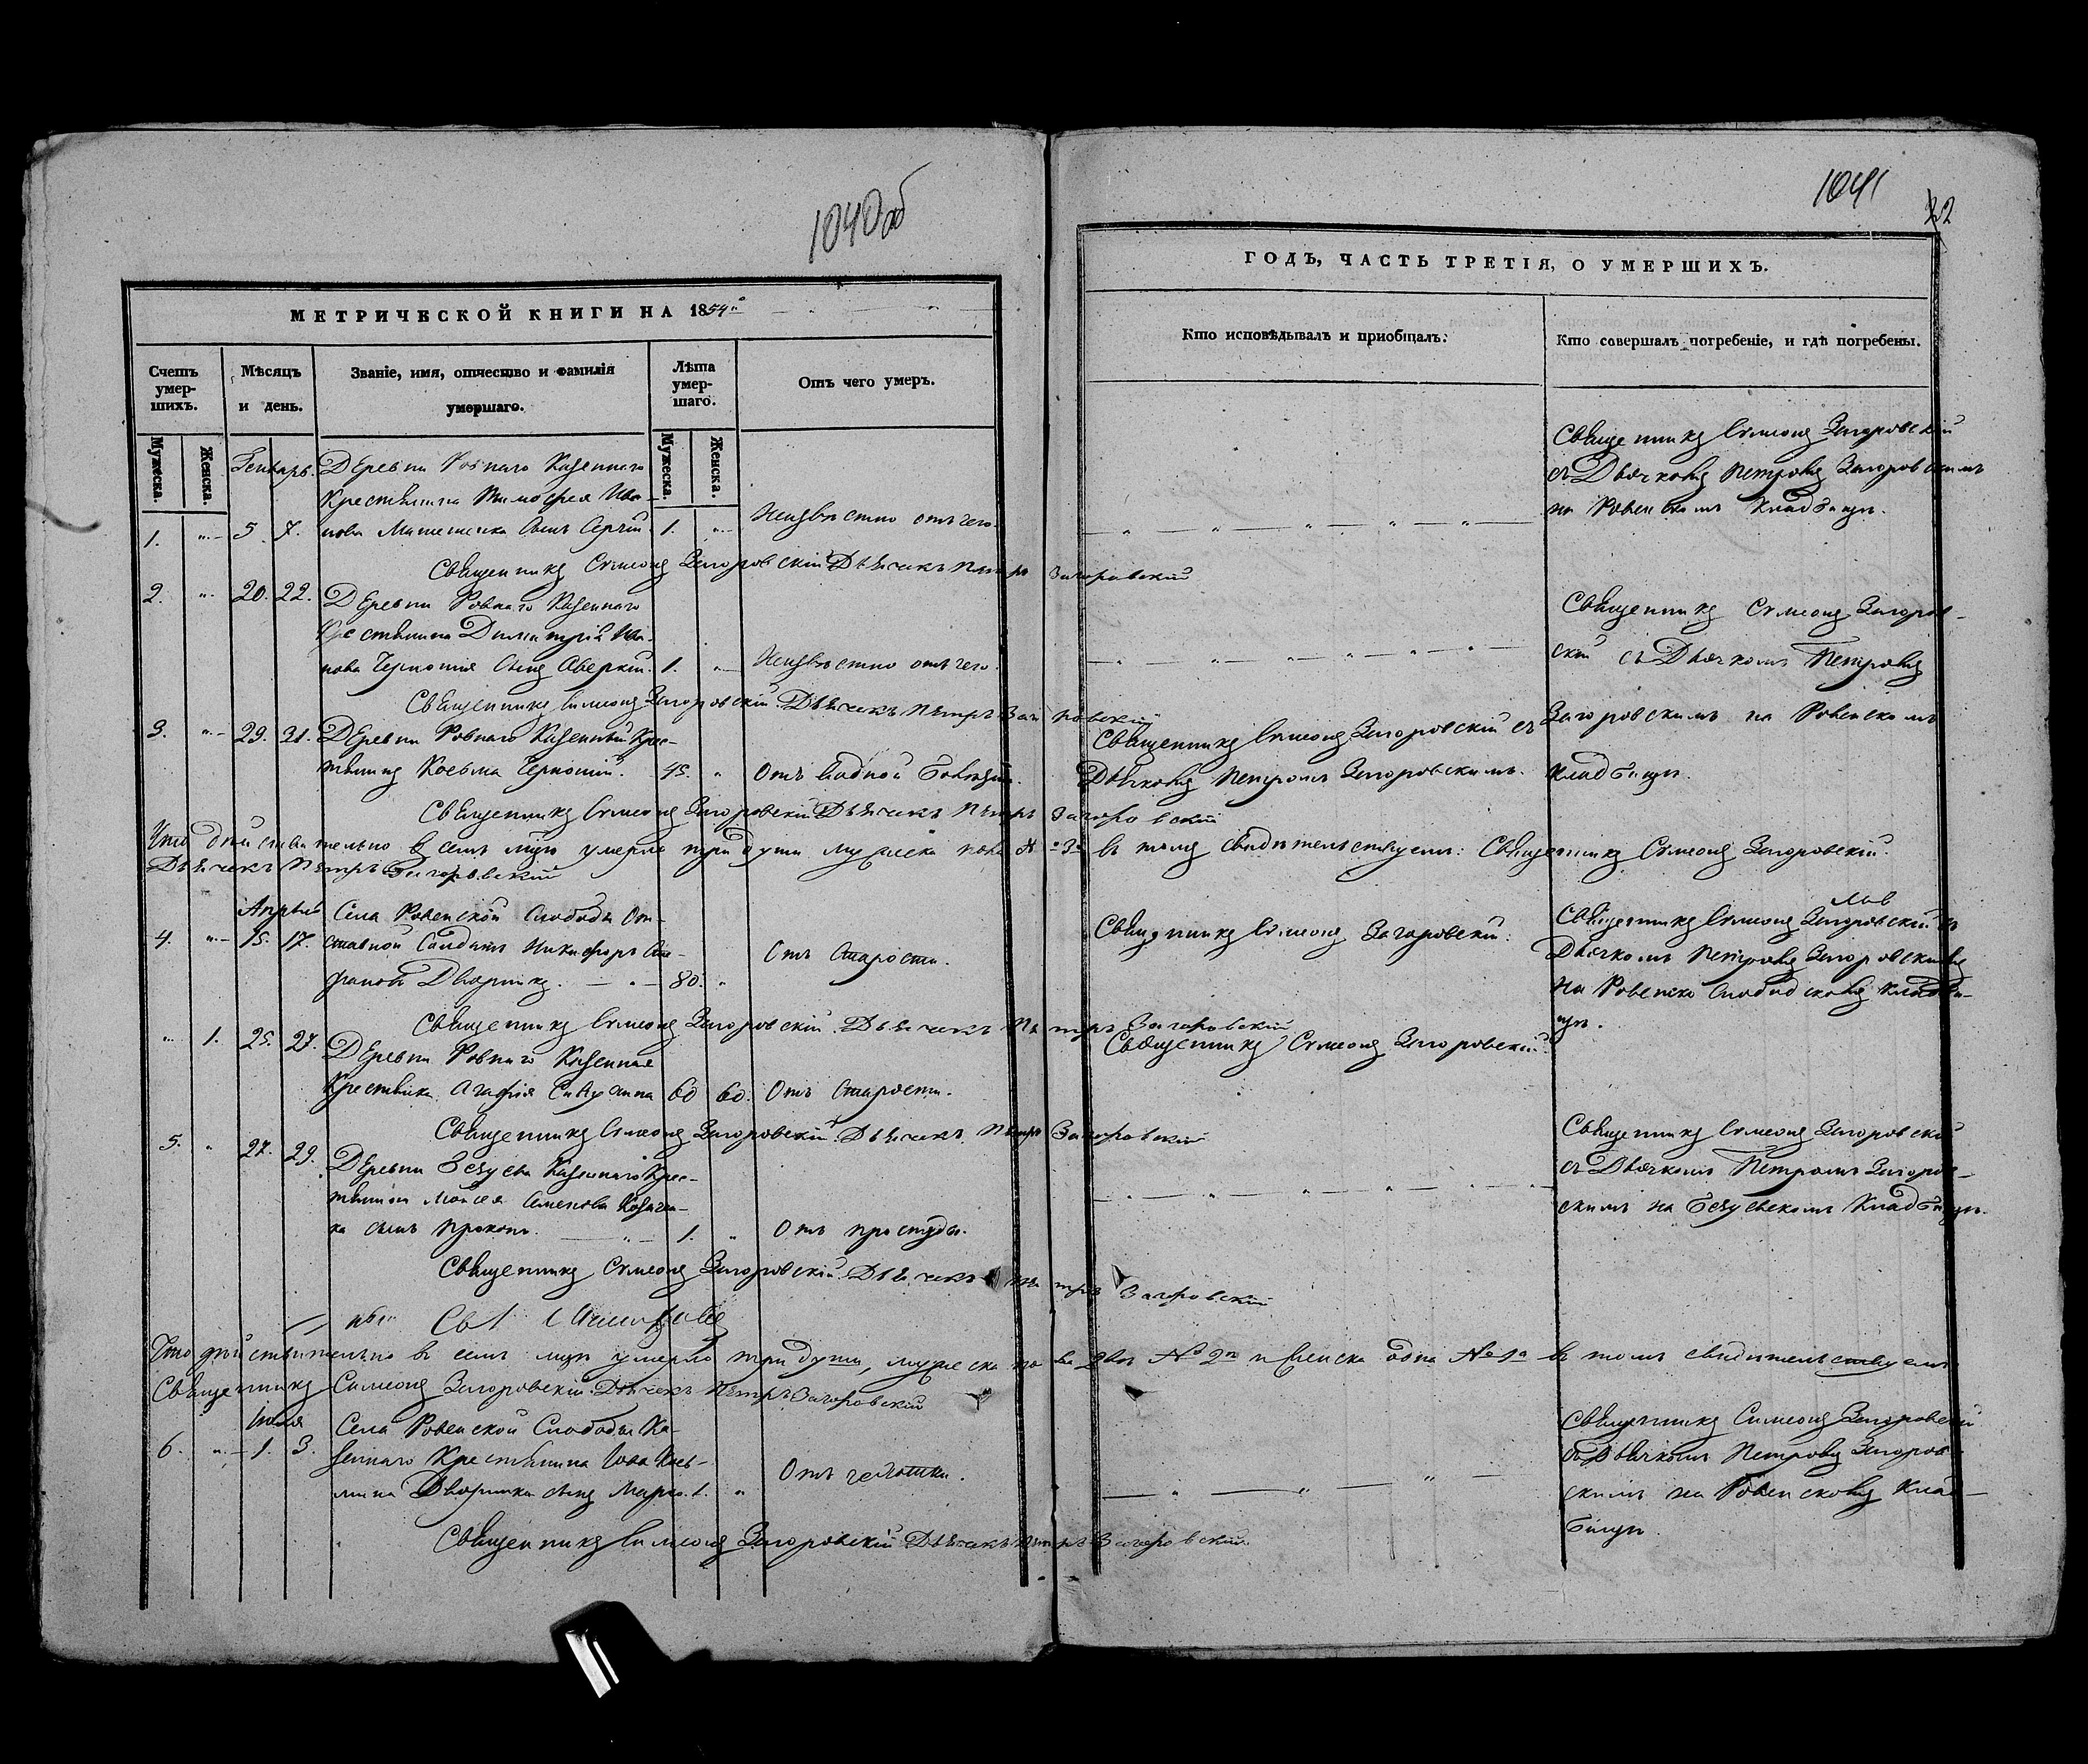 1040об
МЕТРИЧЕСКОЙ КНИГИ НА 1854й
Счетъ умер-шихъ.
Мѣсяцъ и день.
Званіе, имя, отчество и фамилія умершаго.
Лѣта умер-шаго.
Отъ чего умеръ.
Мужеска.
Женска.
Мужеска.
Женска.
Генварь.
Деревни Ровнаго Казеннаго
Крестьянина Тимофея Ива-
1. „ 5. 7. нова сынъ Сергій. 1. „ Неизвѣстно отъ чего.
Священникъ Симеонъ Загоровскій Дьячекъ Петръ Загоровскій
2. „ 20. 22. Деревни Ровнаго Казеннаго
Крестьянина Димитрія Ива-
нова Чернотія сынъ Аверкій. 1. „ Неизвѣстно отъ чего.
Священникъ Симеонъ Загоровскій Дьячекъ Петръ Загоровскій
3. „ 29. 31. Деревни Ровнаго Казенный Крес-
тьянинъ Косьма Чернотій. 45. „ Отъ болѣзни.
Священникъ Симеонъ Загоровскій Дьячекъ Петръ Загоровскій
Что дѣйствительно въ семъ мцѣ умерло три души мужеска пола № 3й въ томъ свидѣтельствуемъ: Священникъ Симеонъ Загоровскій.
Дьячекъ Петръ Загоровскій
Апрѣль Села Ровенской Слободы От-
4. „ 15. 17. ставной Солдатъ Никифоръ Сте-
фановъ Дворникъ. 80. „ Отъ Старости.
Священникъ Симеонъ Загоровскій. Дьячекъ Петръ Загоровскій
„ 1. 25. 27. Деревни Ровнаго Казенная
Крестьянка Агафія 60 60. Отъ Старости.
Священникъ Симеонъ Загоровскій. Дьячекъ Петръ Загоровскій
5. „ 27. 29. Деревни Казеннаго Крес-
тьянина Моисея Семенова
ка сынъ Прокопъ. 1. „ Отъ простуды.
Священникъ Симеонъ Загоровскій. Дьячекъ Петръ Загоровскій
Что дѣйствительно въ семъ мцѣ умерло три души, мужеска пола двѣ № 2й и женска одна № 1й въ томъ свидѣтельствуемъ
Священникъ Симеонъ Загоровскій. Дьячекъ Петръ Загоровскій
Села Ровенской Слободы Ка-
6. „ 1. 3. зеннаго Крестьянина Іова Кось-
мина Дворника сынъ Марко. 1. „ Отъ
Священникъ Симеонъ Загоровскій Дьячекъ Петръ Загоровскій
1041
ГОДЪ, ЧАСТЬ ТРЕТІЯ, О УМЕРШИХЪ.
Кто исповѣдывалъ и приобщалъ:
Кто совершалъ погребеніе, и гдѣ погребены.
Священникъ Симеонъ Загоровскій
съ Дьячкомъ Петромъ Загоровскимъ
на Ровенскомъ Кладбищѣ.
Священникъ Симеонъ Загоров-
скій съ Дьячкомъ Петромъ
Священникъ Симеонъ Загоровскій съ
Дьячкомъ Петромъ Загоровскимъ.
Загоровскимъ на Ровенскомъ
кладбищѣ.
Священникъ Симеонъ Загоровскій.
Священникъ Симеонъ Загоровскій съ
Дьячкомъ Петромъ Загоровскимъ
на Ровенско Слободскомъ кладби-
щѣ.
Священникъ Симеонъ Загоровскій.
Священникъ Симеонъ Загоровскій
съ Дьячкомъ Петромъ Загоров-
скимъ на Кладбищѣ.
Священникъ Симеонъ Загоровскій
съ Дьячкомъ Петромъ Загоров-
скимъ на Ровенскомъ Клад-
бищѣ.